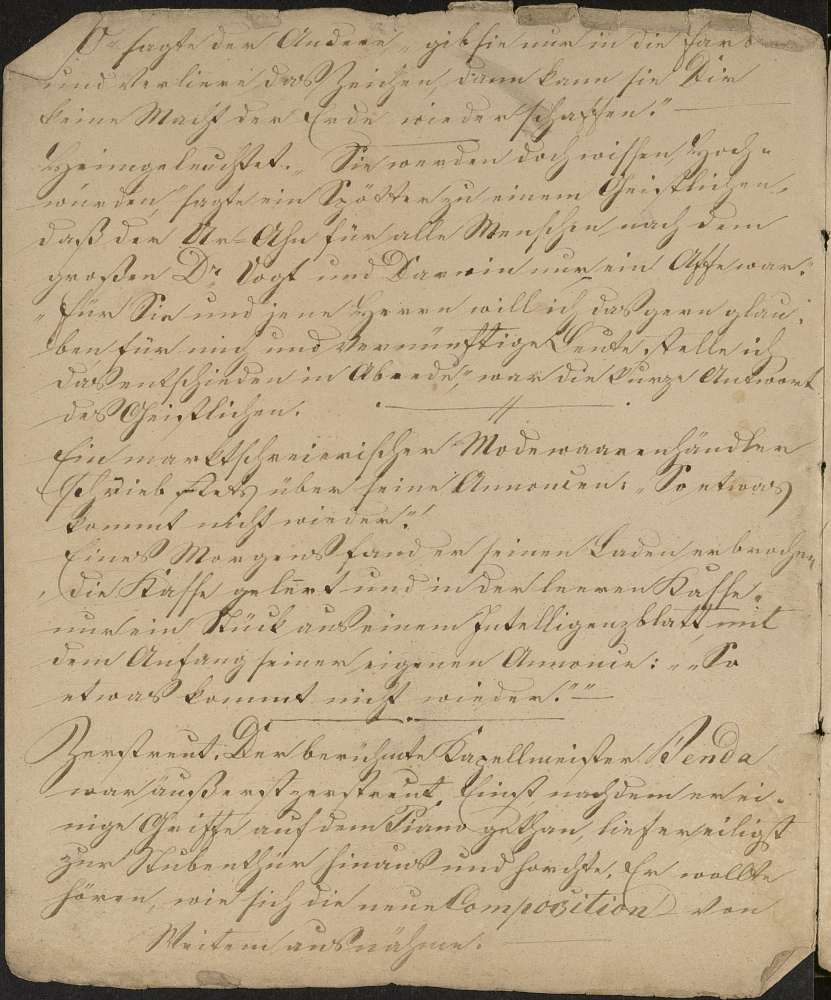 sagte der Andere, „gib sie nur in die Farb
und verliere das Zeichen, dann kann sie Dir
keine Macht der Erde wieder schaffen."
Heimgeleuchtet. „Sie werden doch wissen, Hoch-
würden," sagte ein Spötter zu einem Geistlichen,
daß der Ur-Ahn für alle Menschen nach dem
großen Dr. Vogt und Darwin nur ein Affe war."
„Für Sie und jene Herrn will ich das gern glau-
ben für mich und vernünftige Leute stelle ich
das entschieden in Abrede," war die kurze Antwort
des Geistlichen.
Ein marktschreierischer Modewaarenhändler
schrieb stets über seine Annoncen: „So etwas
kommt nicht wieder"!
Eines Morgens fand er seinen Laden erbrochen,
die Kasse gelert und in der leeren Kasse
nur ein Stück aus einem Intelligenzblatt mit
dem Anfang seiner eigenen Annonce: „„So
etwas kommt nicht wieder.""
Zerstreut. Der berühmte Kapellmeister Benda
war äußerst zerstreut. Einst nachdem er ei-
nige Griffe auf dem Piano gethan, lief er eiligst
zur Stubenthür hinaus und horchte. Er wollte
hören, wie sich die neue Composition von
Weitem ausnähme.